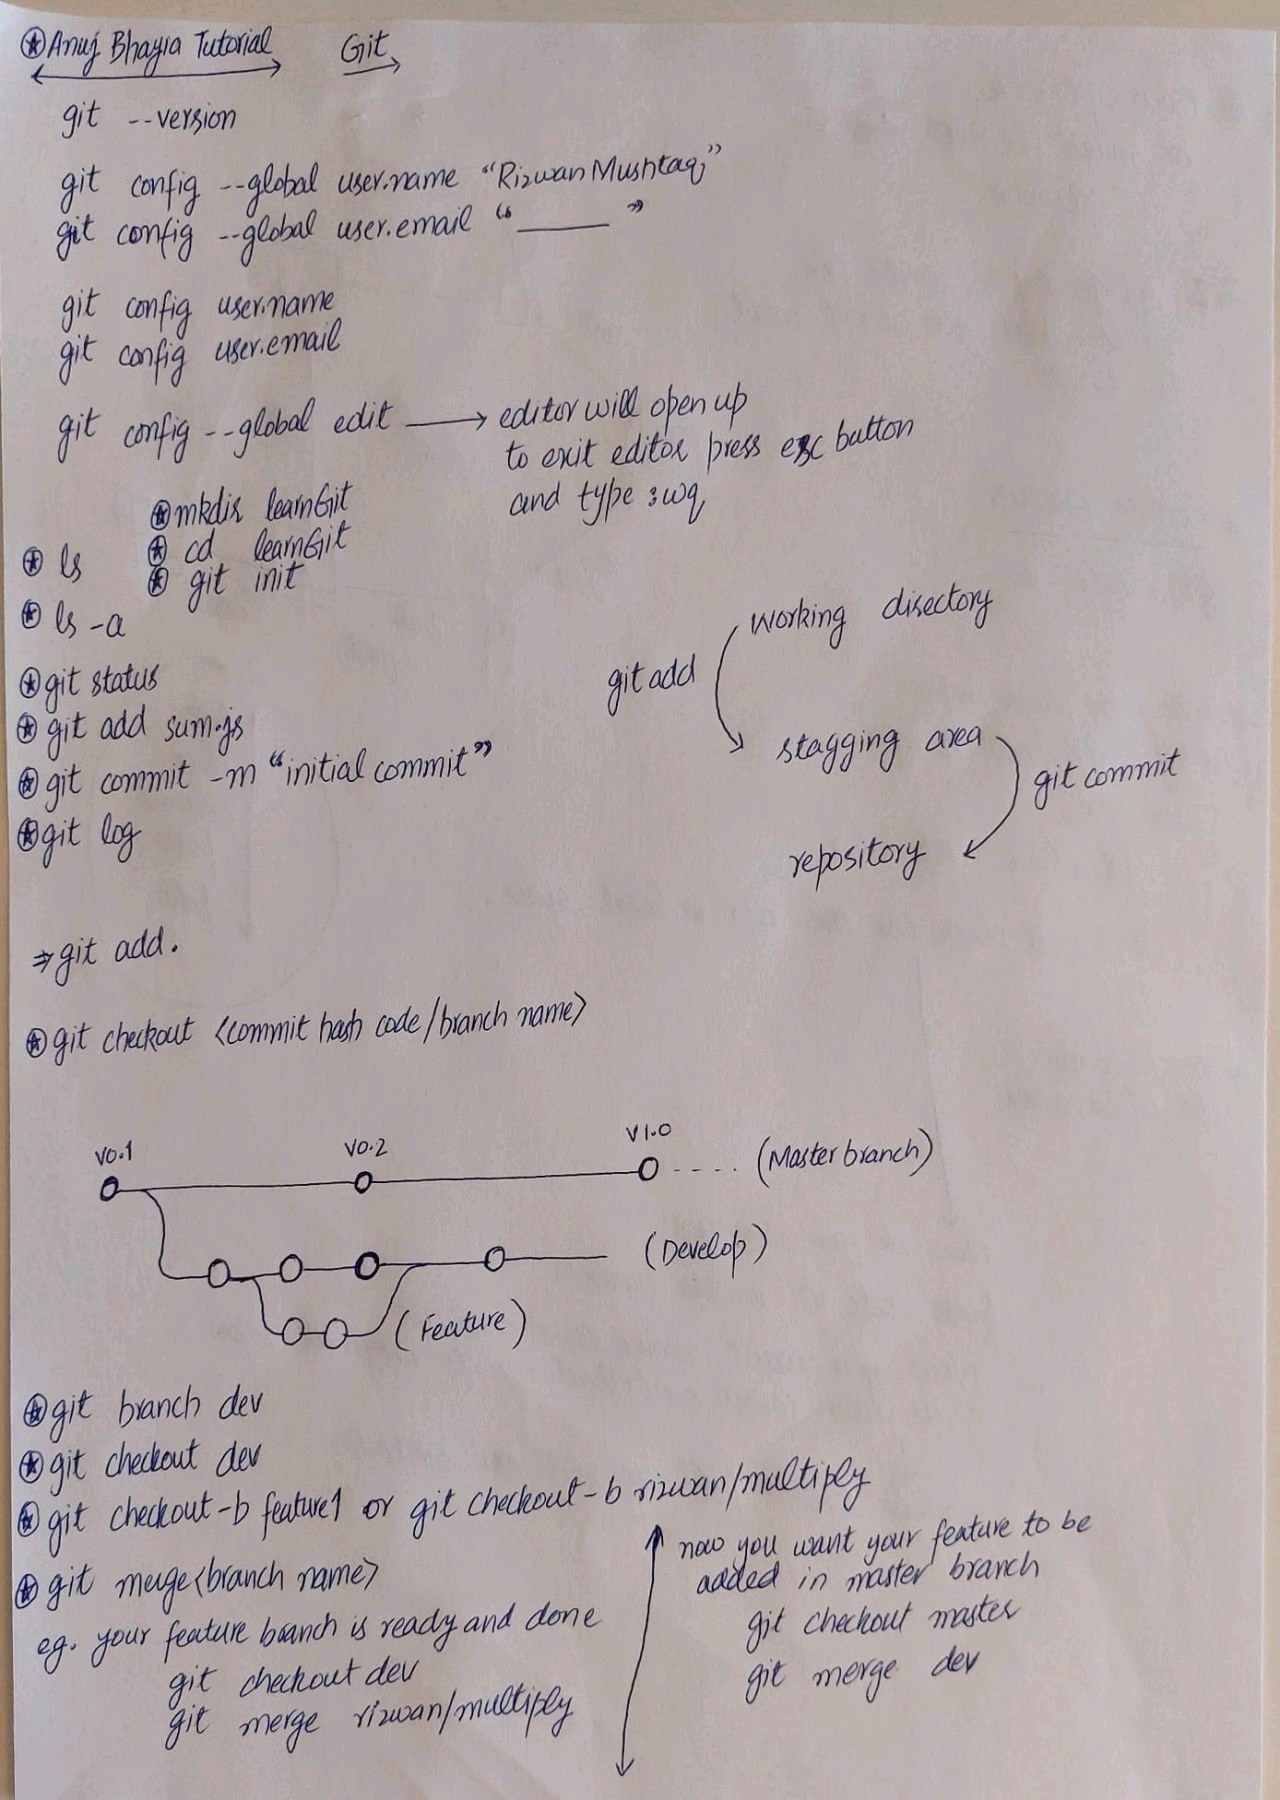 Anuj Bhayia Tutorial Git
git --version
git config --global user.name "Rizwan Mushtaq"
git config --global user.email "______"
git config user.name
git config user.email
git config --global edit → editor will open up
to exit editor press esc button
and type :wq
mkdir learnGit
cd learnGit
git init
ls
ls -a
git status
git add sum.js
git commit -m "initial commit"
git log
working directory
git add
stagging area
git commit
repository
⇒ git add .
git checkout <commit hash code/branch name>
V0.1 V0.2 V1.0
(Master branch)
(Develop)
(Feature)
git branch dev
git checkout dev
git checkout -b feature1 or git checkout -b rizwan/multiply
git merge <branch name>
eg. your feature branch is ready and done
git checkout dev
git merge rizwan/multiply
now you want your feature to be
added in master branch
git checkout master
git merge dev